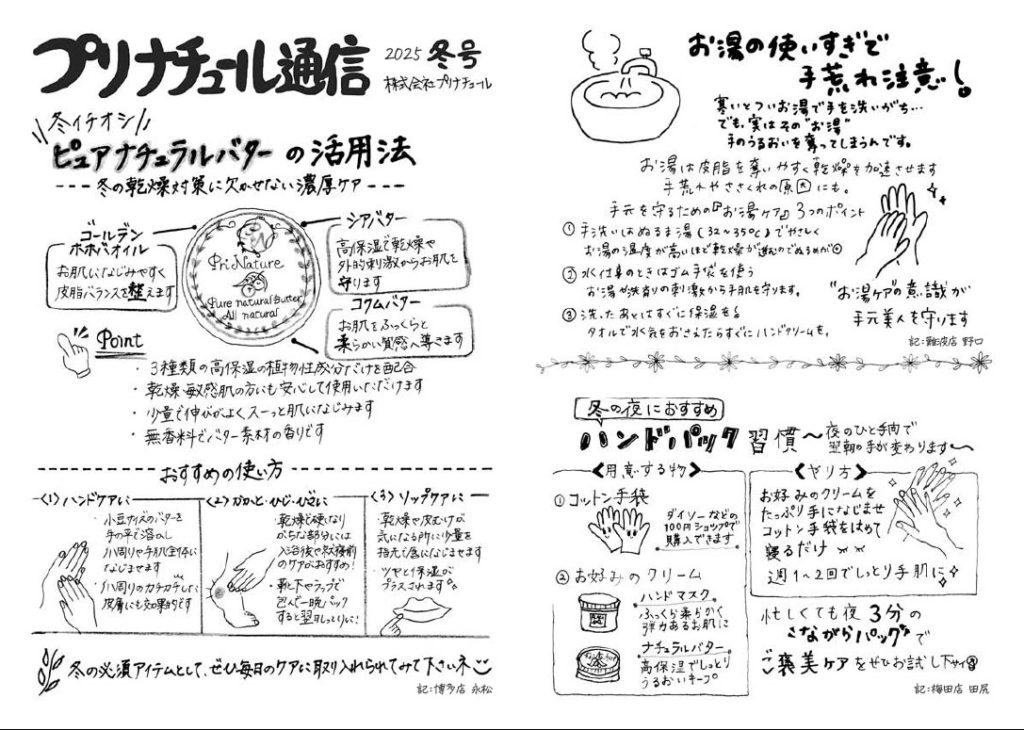 プリナチュール通信
2025 冬号
株式会社プリナチュール
冬イチオシ
ピュアナチュラルバターの活用法
---冬の乾燥対策に欠かせない濃厚ケア---
ゴールデン
ホホバオイル
お肌になじみやすく
皮脂バランスを整えます
Pri Nature
Pure natural Butter
All natural
シアバター
高保湿で乾燥や
外的刺激からお肌を
守ります
コクムバター
お肌をふっくらと
柔らかい質感へ導きます
Point
・3種類の高保湿の植物性成分だけを配合
・乾燥・敏感肌の方にも安心して使用いただけます
・少量で伸びがよく、スーッと肌になじみます
・無香料でバター素材の香りです
おすすめの使い方
〈1〉ハンドケアに
・小豆サイズのバターを
手の平で溶かし
爪周りや手肌全体に
なじませます
・爪周りのカチカチした
皮膚にも効果的です
〈2〉かかと・ひじ・ひざに
・乾燥で硬くなり
がちな部分には
入浴後や就寝前
のケアがおすすめ!
・靴下やラップで
包んで一晩パック
すると翌日しっとりに!
〈3〉リップケアに
・乾燥や皮むけが
気になる所に少量を
指先で唇になじませます
・ツヤと保湿が
プラスされます
冬の必須アイテムとして、ぜひ毎日のケアに取り入れられてみて下さいネ
記:博多店 永松
お湯の使いすぎで
手荒れ注意!
寒いとついお湯で手を洗いがち…
でも、実はその"お湯"
手のうるおいを奪ってしまうんです。
お湯は皮脂を奪いやすく乾燥を加速させます
手荒れやささくれの原因にも。
手元を守るための『お湯ケア』3つのポイント
① 手洗いはぬるま湯(32~35℃)でやさしく
お湯の温度が高いほど乾燥が進むのでぬるめが◎
② 水仕事のときはゴム手袋を使う
お湯や洗剤の刺激から手肌を守ります。
③ 洗ったあとはすぐに保湿する
タオルで水気をおさえたらすぐにハンドクリームを。
"お湯ケア"の意識が
手元美人を守ります
記:難波店 野口
冬の夜におすすめ
ハンドパック習慣
~夜のひと手間で
翌朝の手が変わります~
〈用意する物〉
① コットン手袋
ダイソーなどの
100円ショップで
購入できます
② お好みのクリーム
ハンドマスク
ふっくら柔らかく
弾力あるお肌に
ナチュラルバター
高保湿でしっとり
うるおいキープ
〈やり方〉
お好みのクリームを
たっぷり手になじませ
コットン手袋をはめて
寝るだけ
週1~2回でしっとり手肌に
忙しくても夜3分の
"ながらパック"で
ご褒美ケアをぜひお試し下サイ
記:梅田店 田尻